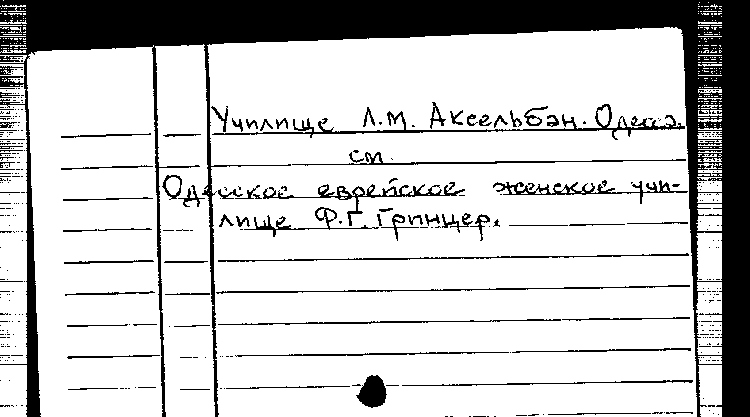 Училище Л.М. Аксельбан. Одесса.
см.
Одесское еврейское женское учи-
лище Ф.Г. Гринцер.